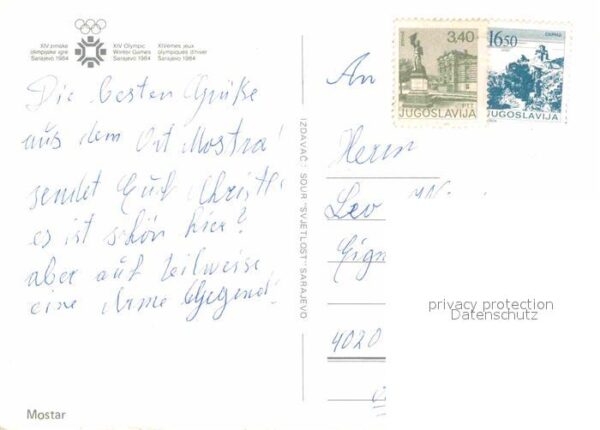 XIV zimske olimpijske igre Sarajevo 1984
XIV Olympic Winter Games Sarajevo 1984
XIVèmes jeux olympiques d'hiver Sarajevo 1984
Die besten Grüße
aus dem Ort Mostra!
sendet Euch Christl
es ist schön hier?
aber auch teilweise
eine Arme Gegend!
Mostar
IZDAVAČ: SOUR "SVJETLOST" SARAJEVO
3,40
JUGOSLAVIJA
16,50
JUGOSLAVIJA
An
Herrn
Leo
4020
privacy protection
Datenschutz